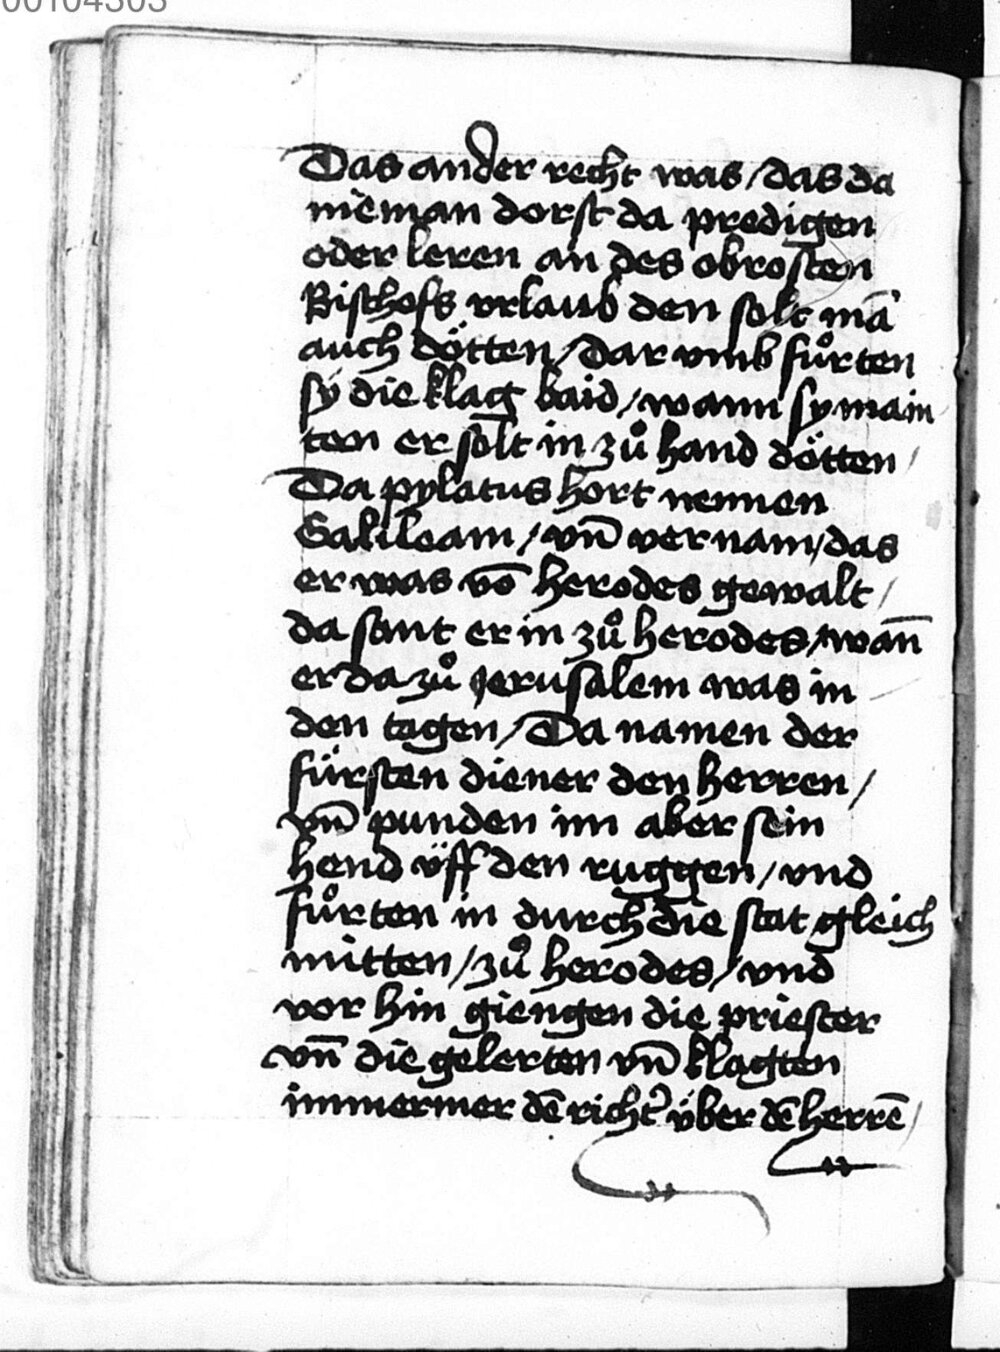 00104303
Das ander recht was / das da
nieman dorst da predigen
oder leren an des obrosten
Bischofs vrlaub den solt mā
auch dötten / dar vmb fůrten
sy die klag baid / wann sy main
ten er solt in zů hand dötten /
Da pylatus hort nennen
Galileam / vn̄ vernam / das
er was vō herodes gewalt /
da sant er in zů herodes / wan̄
er da zů Jerusalem was in
den tagen / Da namen der
fürsten diener den herren /
vn̄ punden im aber sein
hend vff den ruggen / vnd
fůrten in durch die stat gleich
mitten / zů herodes / vnd
vor hin giengen die priester
vn̄ die gelerten vn̄ klagten
immermer dē richt' über dē herrē /